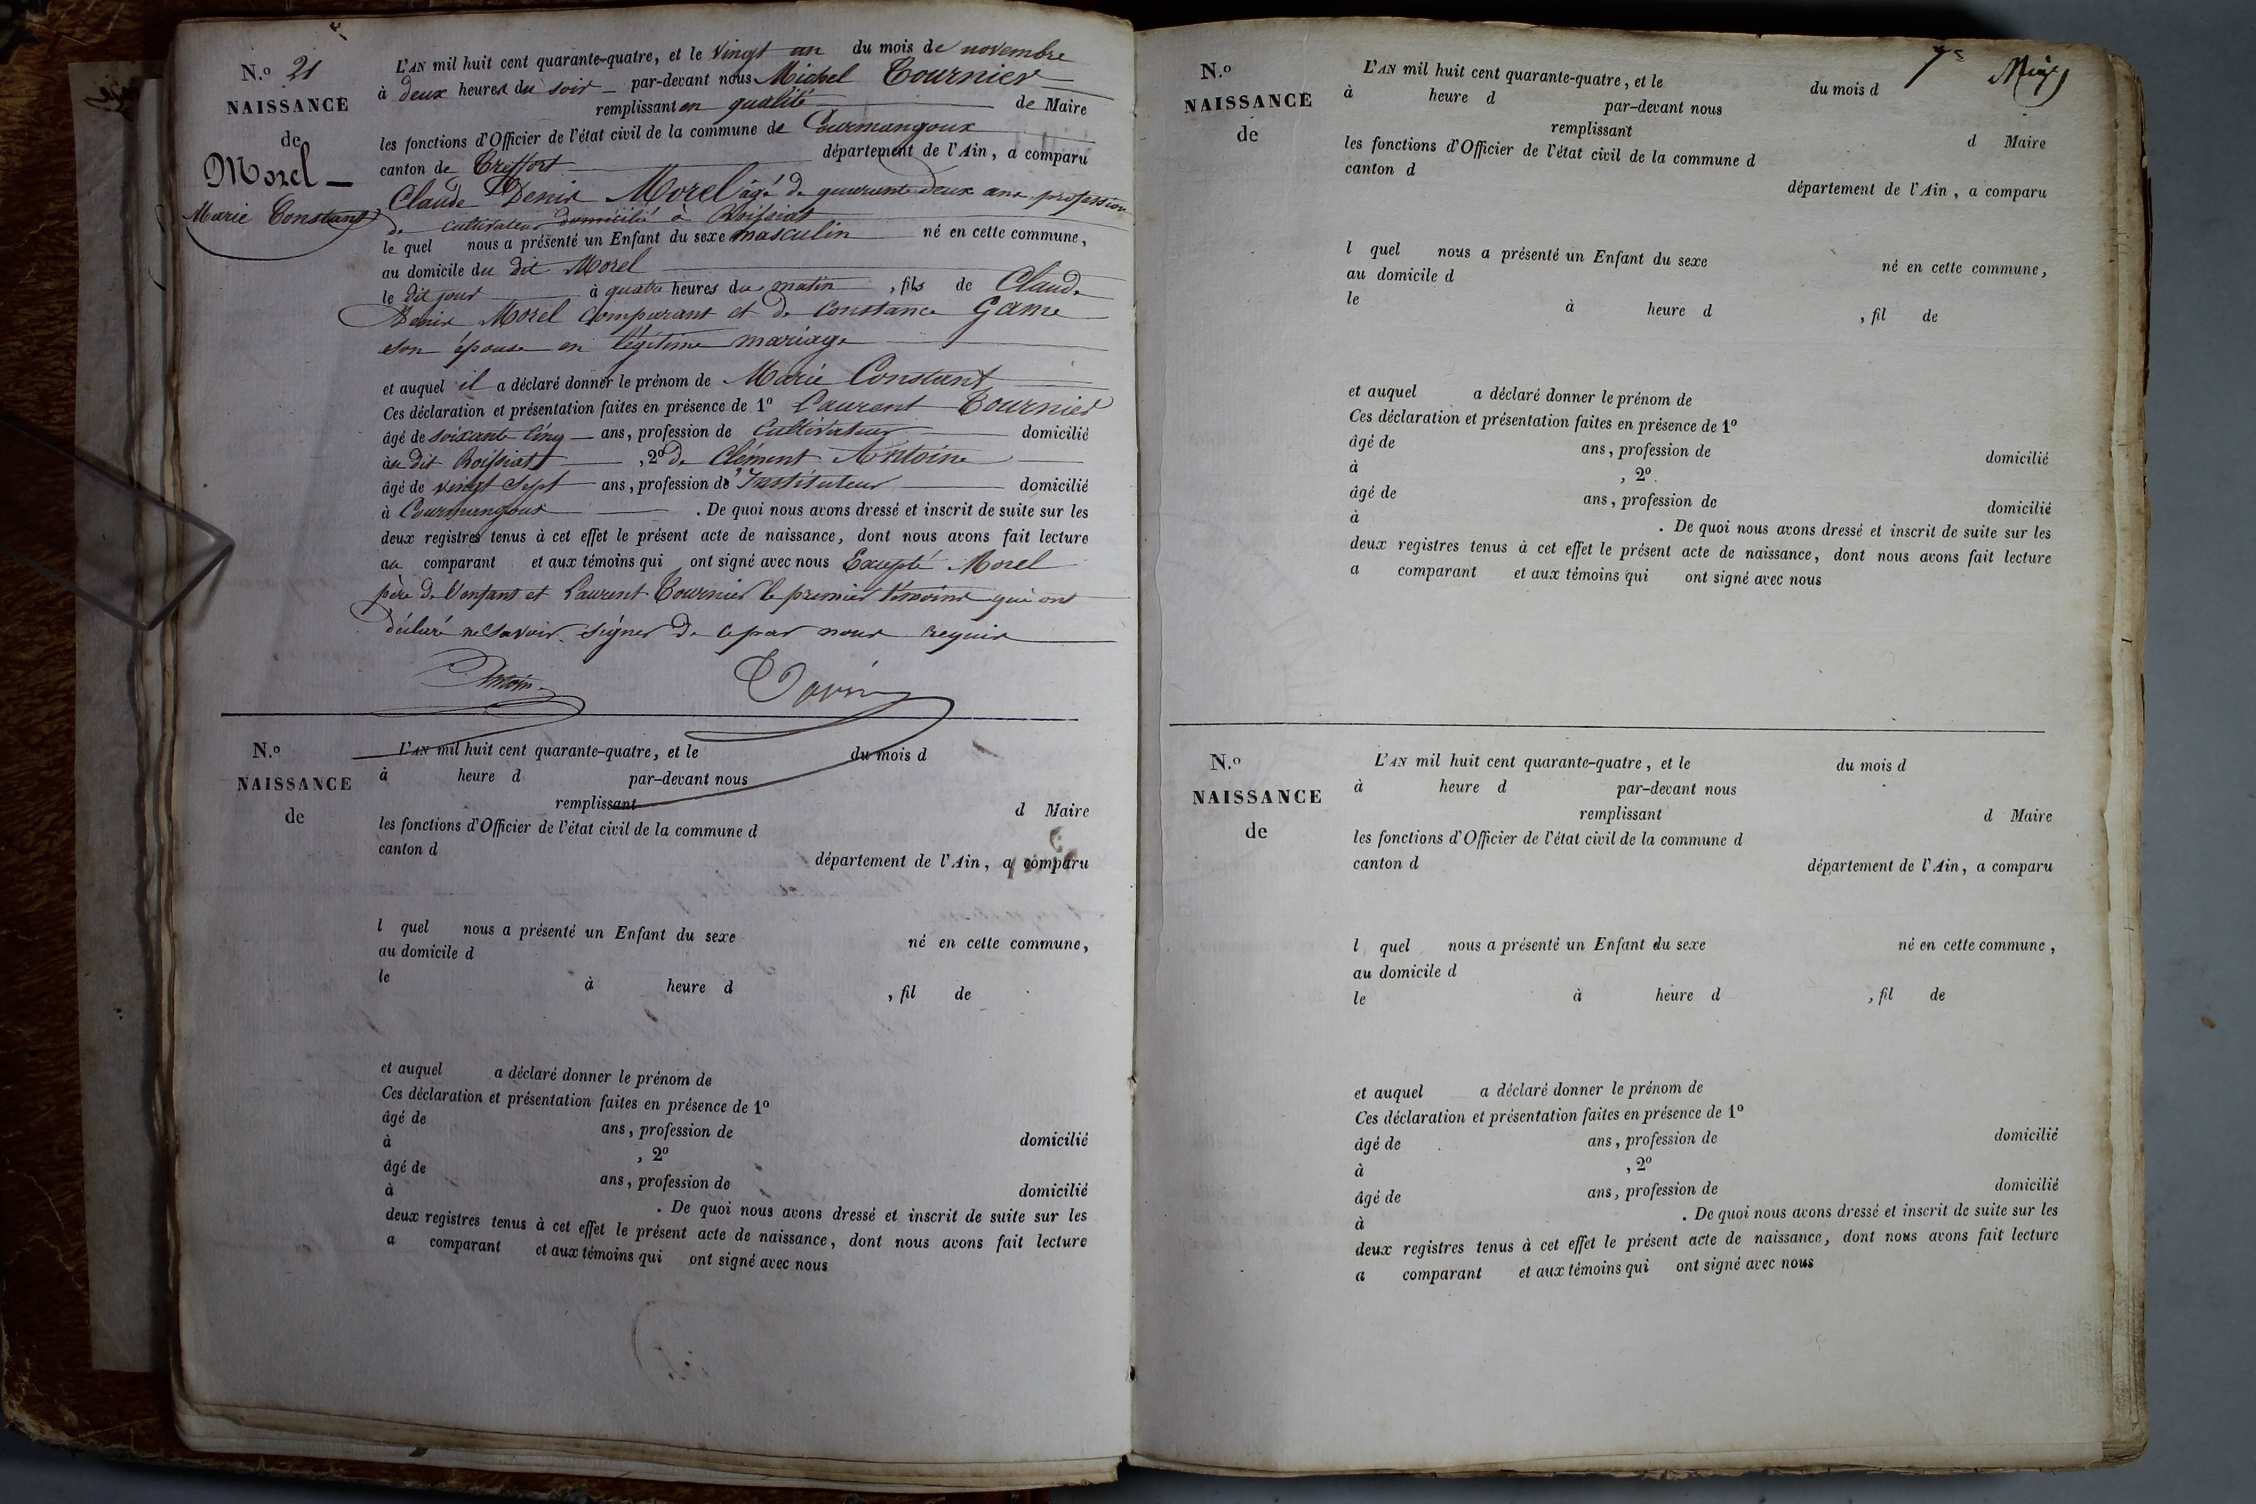 N.º 21
NAISSANCE
de
Morel
Marie Constant
L'AN mil huit cent quarante-quatre, et le vingt un du mois de novembre
à deux heures du soir par-devant nous Michel Tournier
remplissant en qualité de Maire
les fonctions d'Officier de l'état civil de la commune de Courmangoux
canton de Treffort département de l'Ain, a comparu
Claude Denis Morel âgé de quarante deux ans profession
de cultivateur domicilié à Roissiat
le quel nous a présenté un Enfant du sexe masculin né en cette commune,
au domicile du dit Morel
le dit jour à quatre heures du matin, fils de Claude
Denis Morel comparant et de Constance Game
son épouse en légitime mariage
et auquel il a déclaré donner le prénom de Marie Constant
Ces déclaration et présentation faites en présence de 1º Laurent Tournier
âgé de soixante cinq ans, profession de cultivateur domicilié
au dit Roissiat, 2º de Clément Antoine
âgé de vingt sept ans, profession de Instituteur domicilié
à Courmangoux. De quoi nous avons dressé et inscrit de suite sur les
deux registres tenus à cet effet le présent acte de naissance, dont nous avons fait lecture
au comparant et aux témoins qui ont signé avec nous Excepté Morel
père de l'enfant et Laurent Tournier le premier témoins qui ont
déclaré ne savoir signer de ce par nous requis
N.º
NAISSANCE
de
L'AN mil huit cent quarante-quatre, et le du mois d
à heure d par-devant nous
remplissant d Maire
les fonctions d'Officier de l'état civil de la commune d
canton d département de l'Ain, a comparu
l quel nous a présenté un Enfant du sexe né en cette commune,
au domicile d
le à heure d , fil de
et auquel a déclaré donner le prénom de
Ces déclaration et présentation faites en présence de 1º
âgé de ans, profession de domicilié
à , 2º
âgé de ans, profession de domicilié
à . De quoi nous avons dressé et inscrit de suite sur les
deux registres tenus à cet effet le présent acte de naissance, dont nous avons fait lecture
a comparant et aux témoins qui ont signé avec nous
N.º
NAISSANCE
de
L'AN mil huit cent quarante-quatre, et le du mois d
à heure d par-devant nous
remplissant d Maire
les fonctions d'Officier de l'état civil de la commune d
canton d département de l'Ain, a comparu
l quel nous a présenté un Enfant du sexe né en cette commune,
au domicile d
le à heure d , fil de
et auquel a déclaré donner le prénom de
Ces déclaration et présentation faites en présence de 1º
âgé de ans, profession de domicilié
à , 2º
âgé de ans, profession de domicilié
à . De quoi nous avons dressé et inscrit de suite sur les
deux registres tenus à cet effet le présent acte de naissance, dont nous avons fait lecture
a comparant et aux témoins qui ont signé avec nous
N.º
NAISSANCE
de
L'AN mil huit cent quarante-quatre, et le du mois d
à heure d par-devant nous
remplissant d Maire
les fonctions d'Officier de l'état civil de la commune d
canton d département de l'Ain, a comparu
l quel nous a présenté un Enfant du sexe né en cette commune,
au domicile d
le à heure d , fil de
et auquel a déclaré donner le prénom de
Ces déclaration et présentation faites en présence de 1º
âgé de ans, profession de domicilié
à , 2º
âgé de ans, profession de domicilié
à . De quoi nous avons dressé et inscrit de suite sur les
deux registres tenus à cet effet le présent acte de naissance, dont nous avons fait lecture
a comparant et aux témoins qui ont signé avec nous